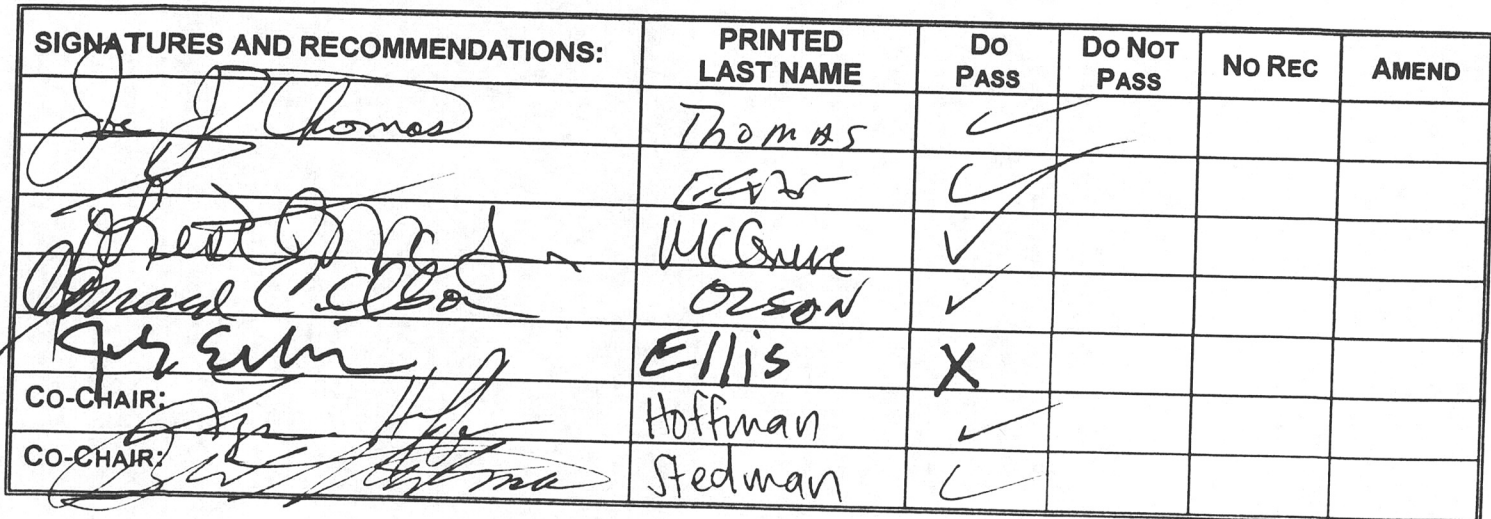 SIGNATURES AND RECOMMENDATIONS: PRINTED LAST NAME DO PASS DO NOT PASS NO REC AMEND
Joe J Thomas Thomas ✓
✓
McGuire ✓
Donald C. Olson OLSON ✓
Ellis X
CO-CHAIR: Hoffman ✓
CO-CHAIR: Stedman ✓